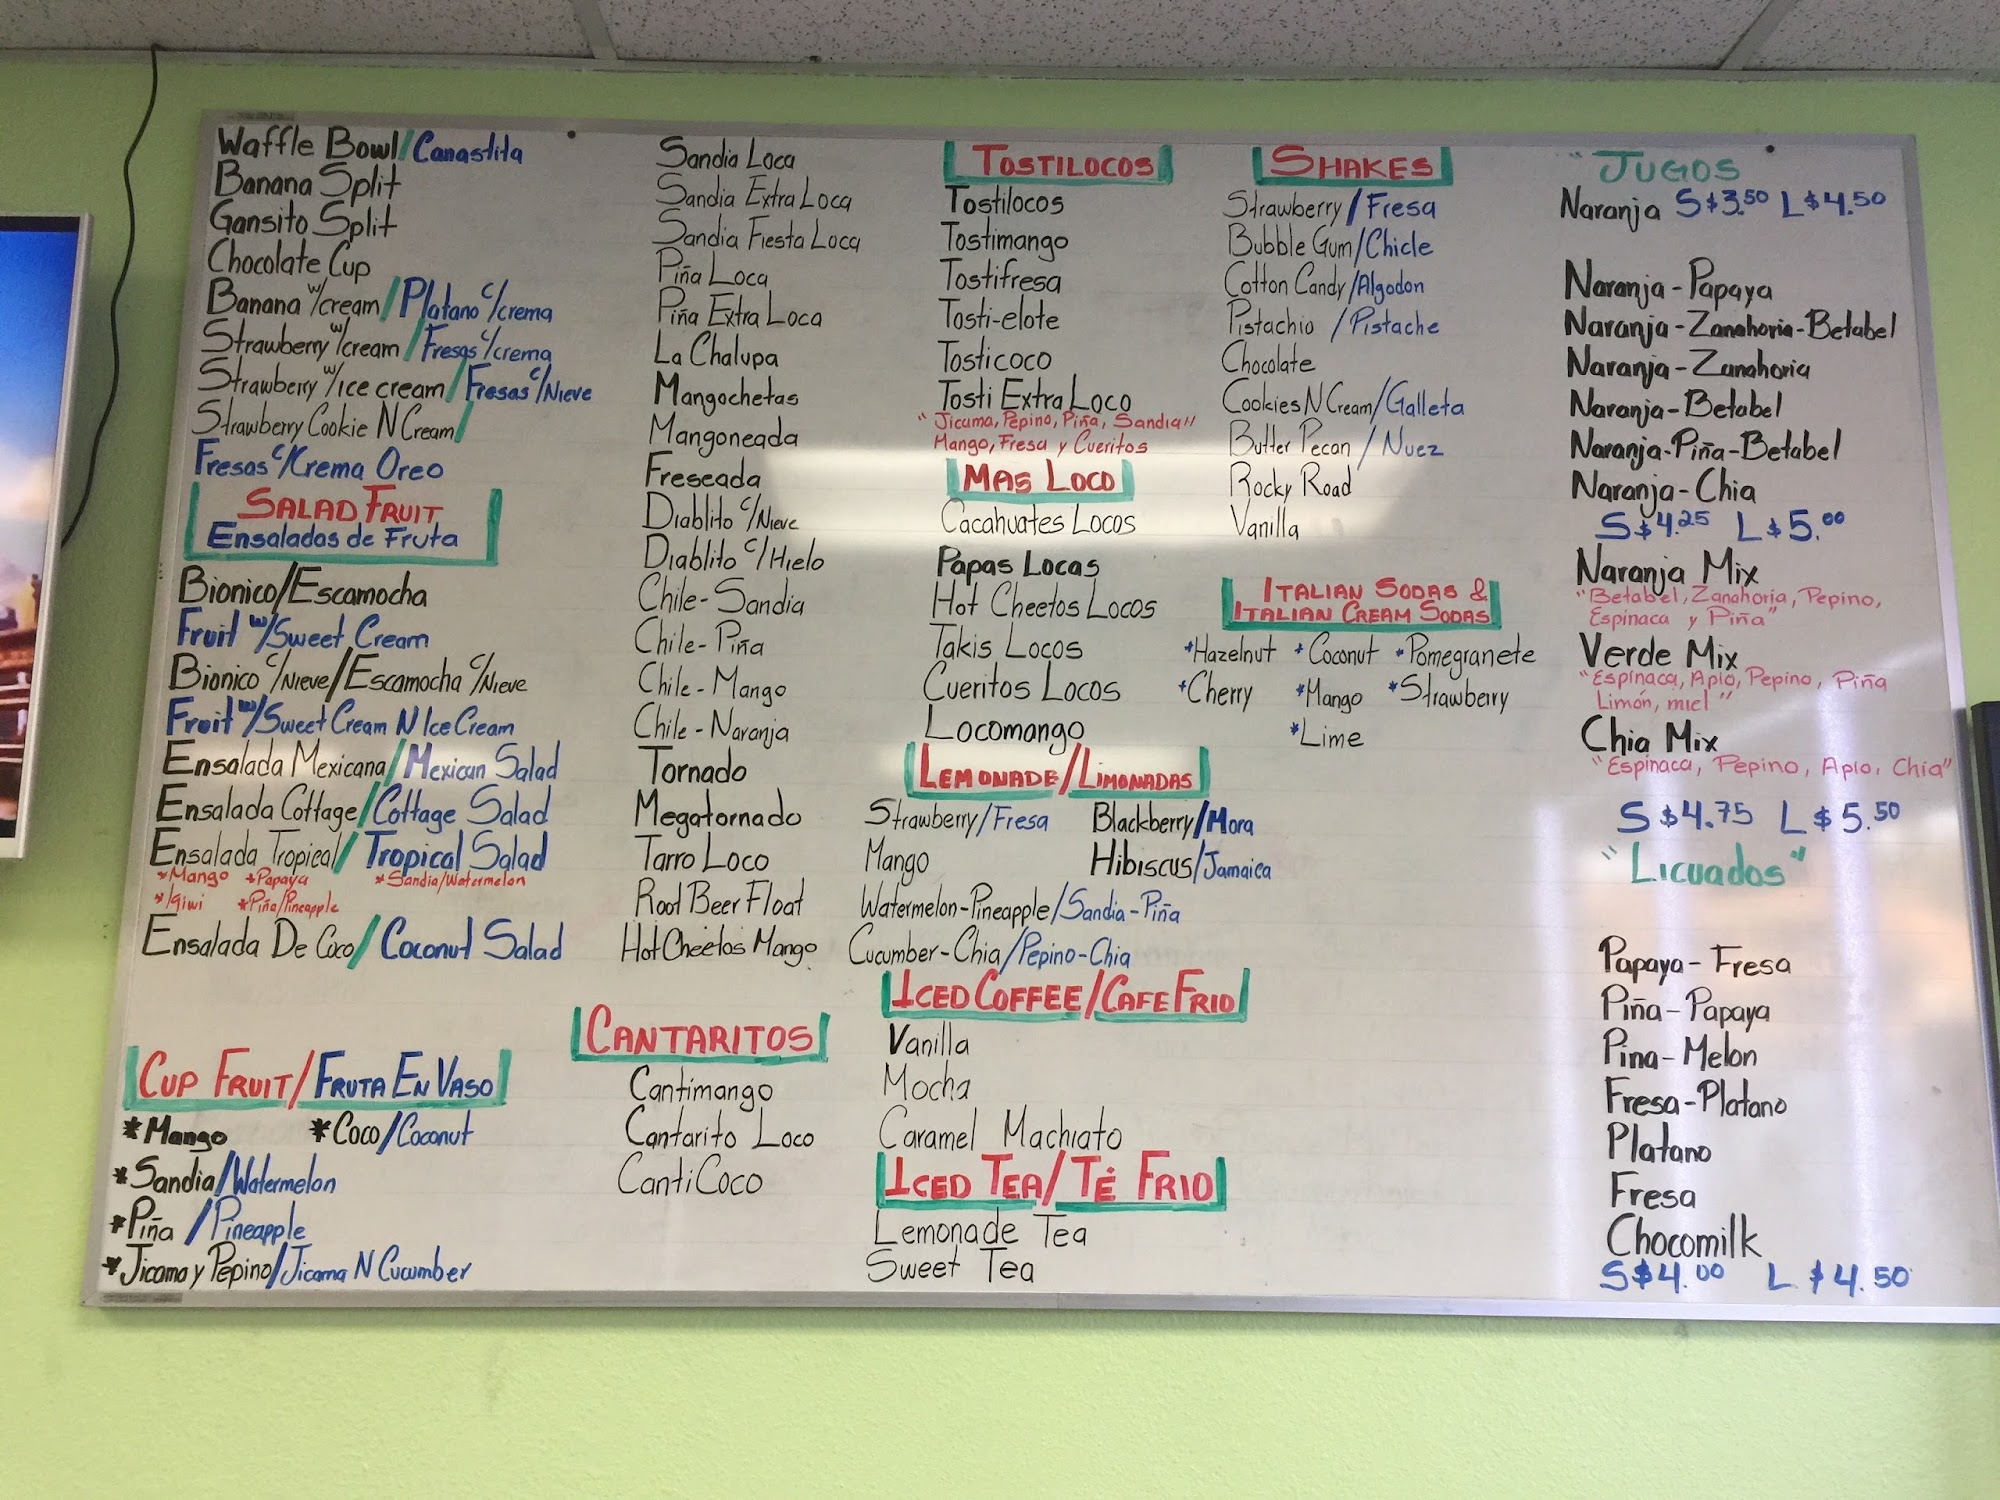 Waffle Bowl/Canastita
Banana Split
Gansito Split
Chocolate Cup
Banana w/cream/Platano c/crema
Strawberry w/cream/Fresas c/crema
Strawberry w/Ice cream/Fresas c/Nieve
Strawberry Cookie N Cream/
Fresas c/Crema Oreo
Salad Fruit
Ensaladas de Fruta
Bionico/Escamocha
Fruit w/Sweet Cream
Bionico c/Nieve/Escamocha c/Nieve
Fruit w/Sweet Cream N Ice Cream
Ensalada Mexicana/Mexican Salad
Ensalada Cottage/Cottage Salad
Ensalada Tropical/Tropical Salad
*Mango *Papaya *Sandia/Watermelon
*Kiwi *Piña/Pineapple
Ensalada De Coco/Coconut Salad
Cup Fruit/Fruta En Vaso
*Mango *Coco/Coconut
*Sandia/Watermelon
*Piña/Pineapple
*Jicama y Pepino/Jicama N Cucumber
Sandia Loca
Sandia Extra Loca
Sandia Fiesta Loca
Piña Loca
Piña Extra Loca
La Chalupa
Mangochetas
Mangoneada
Freseada
Diablito c/Nieve
Diablito c/Hielo
Chile-Sandia
Chile-Piña
Chile-Mango
Chile-Naranja
Tornado
Megatornado
Tarro Loco
Root Beer Float
Hot Cheetos Mango
Cantaritos
Cantimango
Cantarito Loco
CantiCoco
Tostilocos
Tostilocos
Tostimango
Tostifresa
Tosti-elote
Tosticoco
Tosti Extra Loco
"Jicama, Pepino, Piña, Sandia"
Mango, Fresa y Cueritos
Mas Loco
Cacahuates Locos
Papas Locas
Hot Cheetos Locos
Takis Locos
Cueritos Locos
Locomango
Lemonade/Limonadas
Strawberry/Fresa Blackberry/Mora
Mango Hibiscus/Jamaica
Watermelon-Pineapple/Sandia-Piña
Cucumber-Chia/Pepino-Chia
Iced Coffee/Cafe Frio
Vanilla
Mocha
Caramel Machiato
Iced Tea/Té Frio
Lemonade Tea
Sweet Tea
Shakes
Strawberry/Fresa
Bubble Gum/Chicle
Cotton Candy/Algodon
Pistachio/Pistache
Chocolate
Cookies N Cream/Galleta
Butter Pecan/Nuez
Rocky Road
Vanilla
Italian Sodas &
Italian Cream Sodas
*Hazelnut *Coconut *Pomegranete
*Cherry *Mango *Strawberry
*Lime
"Jugos
Naranja S $3.50 L $4.50
Naranja-Papaya
Naranja-Zanahoria-Betabel
Naranja-Zanahoria
Naranja-Betabel
Naranja-Piña-Betabel
Naranja-Chia
S $4.25 L $5.00
Naranja Mix
"Betabel, Zanahoria, Pepino,
Espinaca y Piña"
Verde Mix
"Espinaca, Apio, Pepino, Piña
Limón, miel"
Chia Mix
"Espinaca, Pepino, Apio, Chia"
S $4.75 L $5.50
"Licuados"
Papaya-Fresa
Piña-Papaya
Pina-Melon
Fresa-Platano
Platano
Fresa
Chocomilk
S $4.00 L $4.50